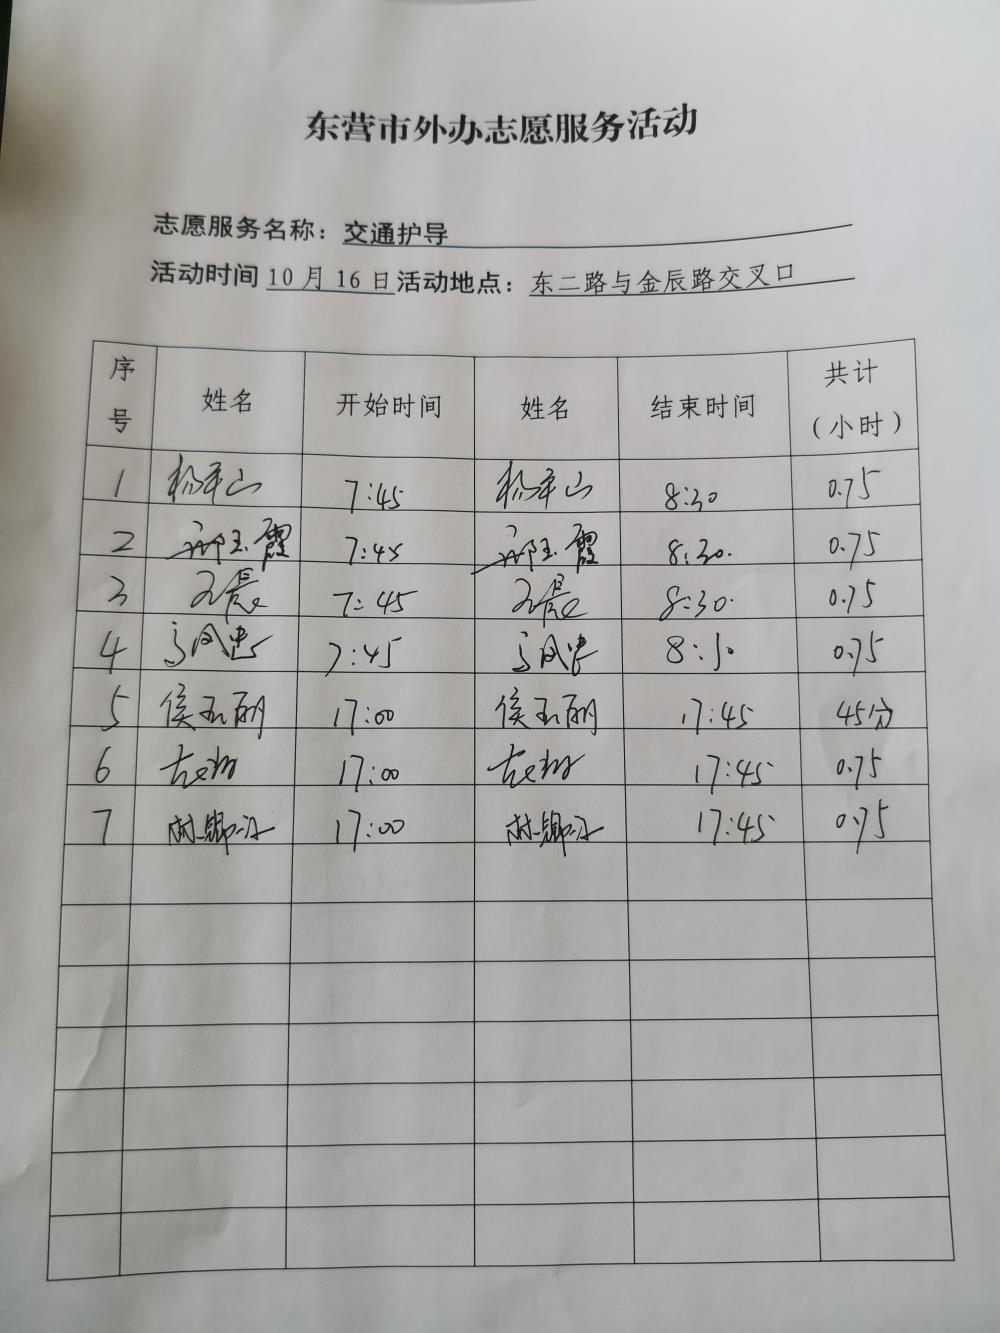 东营市外办志愿服务活动
志愿服务名称：交通护导
活动时间 10 月 16 日 活动地点：东二路与金辰路交叉口
序号 姓名 开始时间 姓名 结束时间 共计（小时）
1 杨平山 7:45 杨平山 8:30 0.75
2 邢玉霞 7:45 邢玉霞 8:30. 0.75
3 晨 7:45 晨 8:30. 0.75
4 7:45 8:30 0.75
5 侯玉丽 17:00 侯玉丽 17:45 45分
6 17:00 17:45 0.75
7 17:00 17:45 0.75